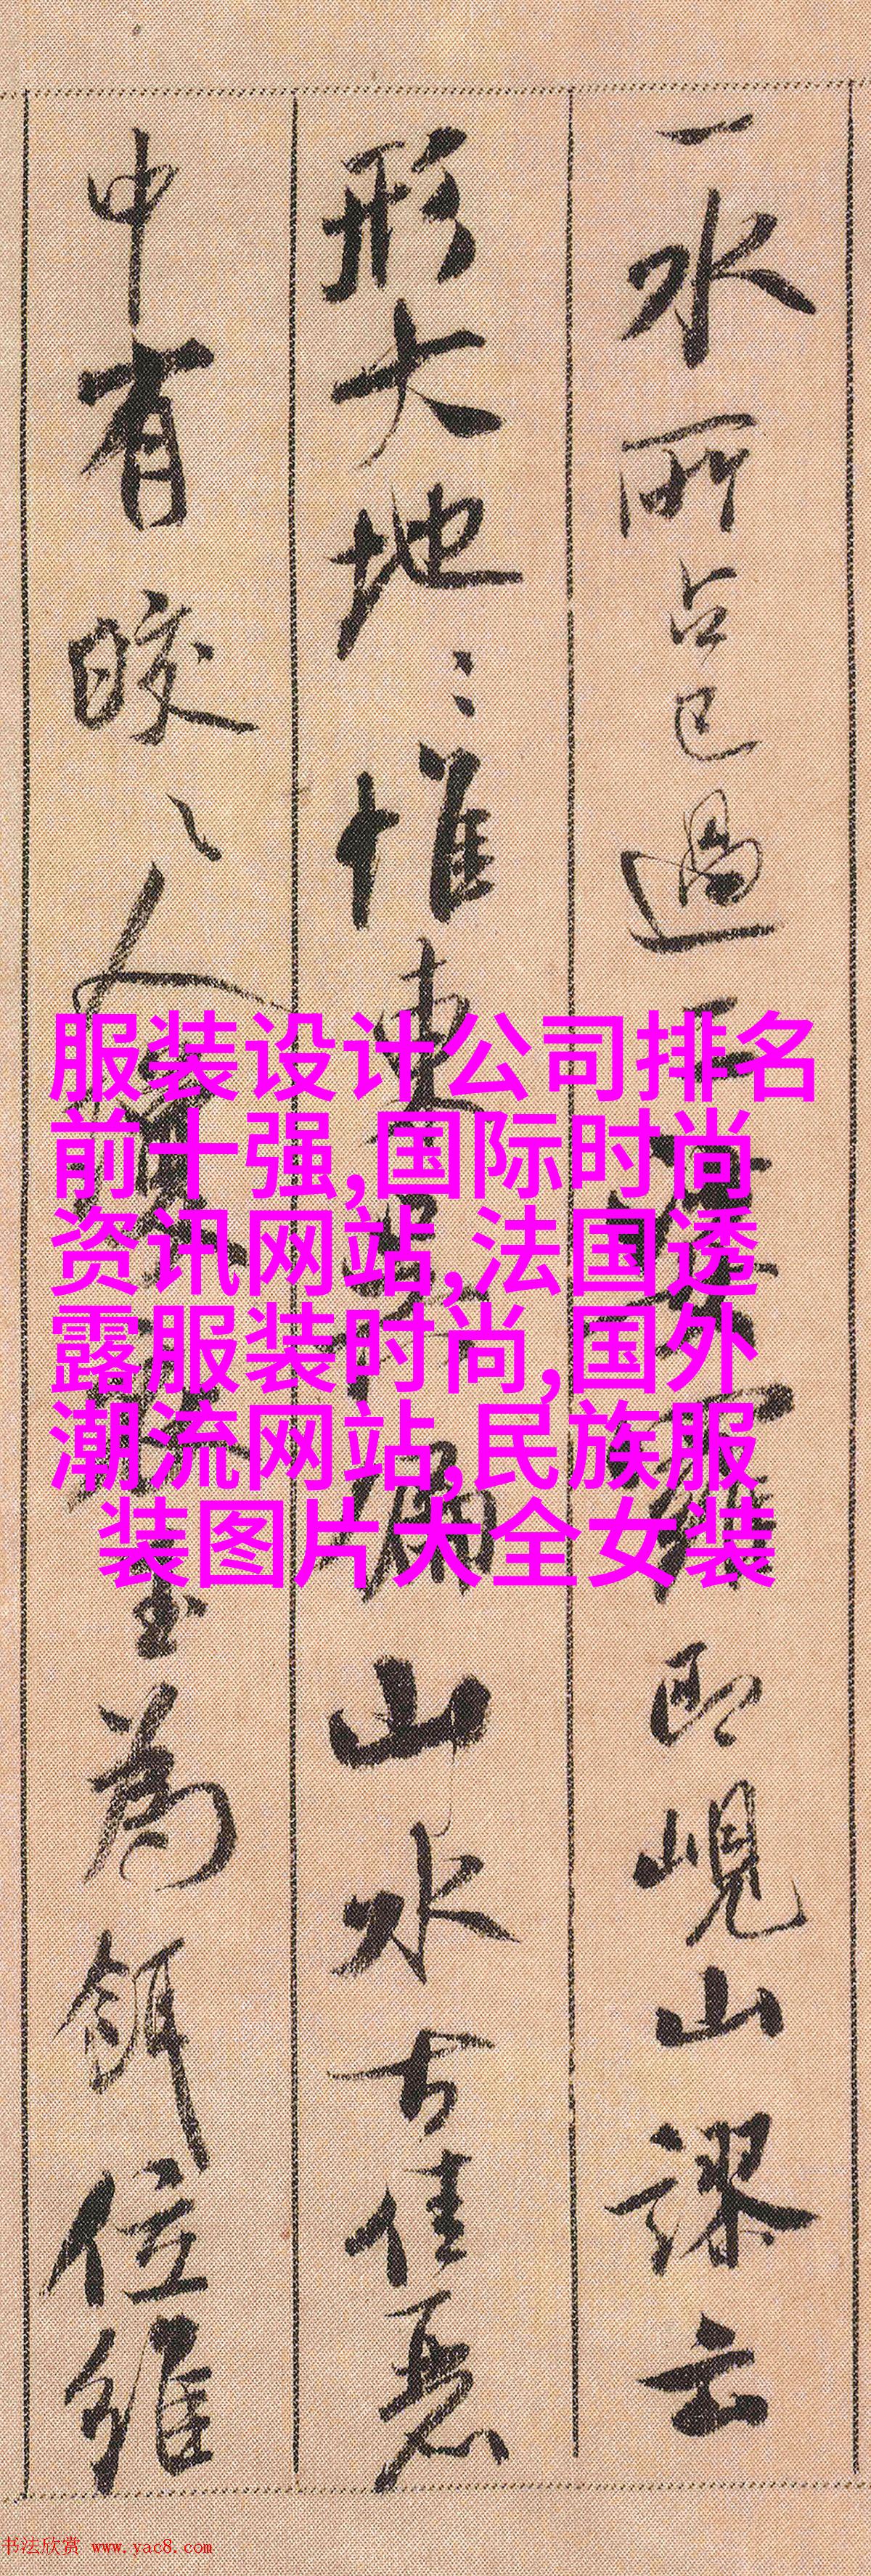 一水所占已過峴山謬云
形大地〻惟東偏山水佳惡
中有皎〻人玉為餌位維
服装设计公司排名
前十强,国际时尚
资讯网站,法国透
露服装时尚,国外
潮流网站,民族服
装图片大全女装
书法欣赏 www.yac8.com